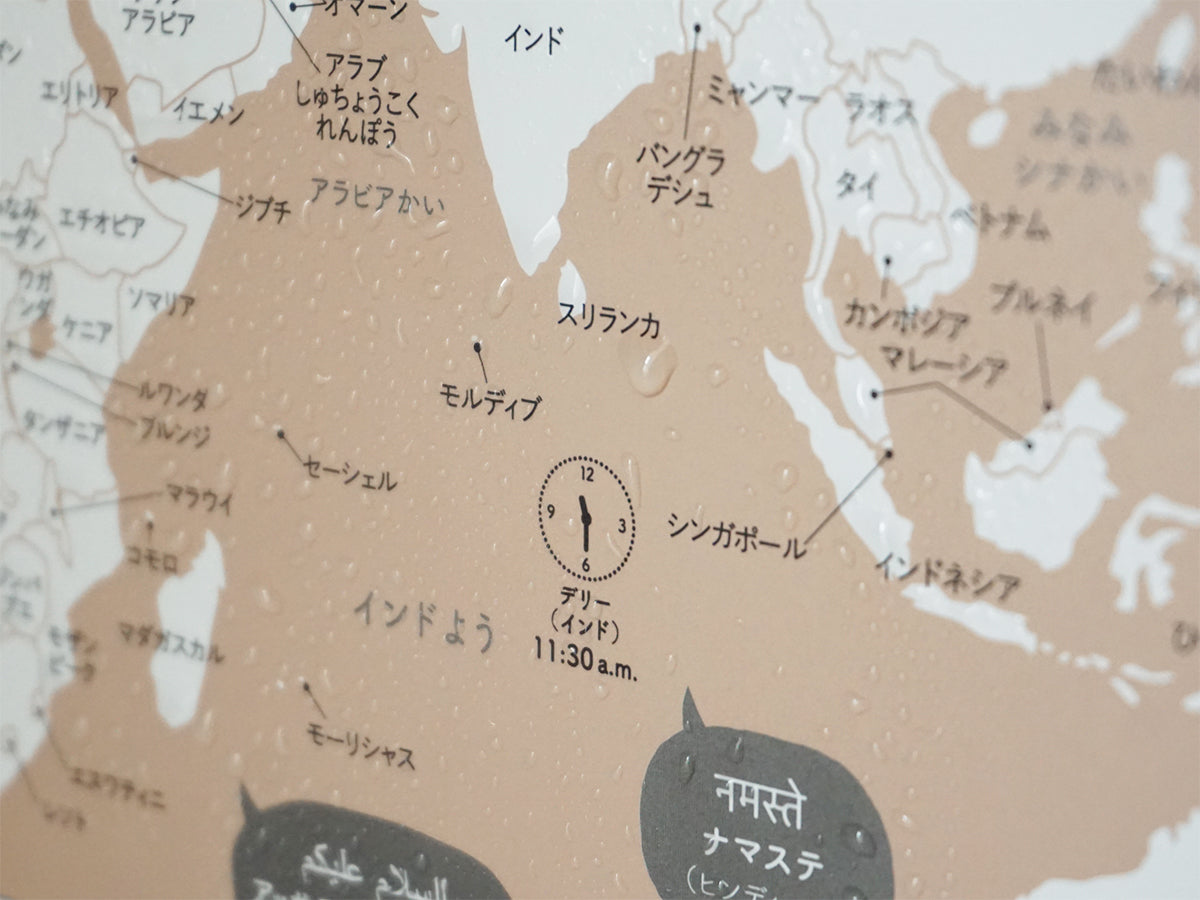 アラビア
オマーン
インド
アラブ
しゅちょうこく
れんぽう
エリトリア
イエメン
ミャンマー
ラオス
みなみ
シナかい
バングラ
デシュ
タイ
ジブチ
アラビアかい
エチオピア
ベトナム
ウガ
ンダ
ソマリア
ケニア
スリランカ
カンボジア
ブルネイ
マレーシア
モルディブ
ルワンダ
ブルンジ
タンザニア
セーシェル
マラウイ
12
9
3
6
シンガポール
コモロ
インドネシア
デリー
(インド)
11:30 a.m.
インドよう
マダガスカル
モザン
ビーク
モーリシャス
エスワティニ
レソト
नमस्ते
ナマステ
(ヒンデ
السلام عليكم